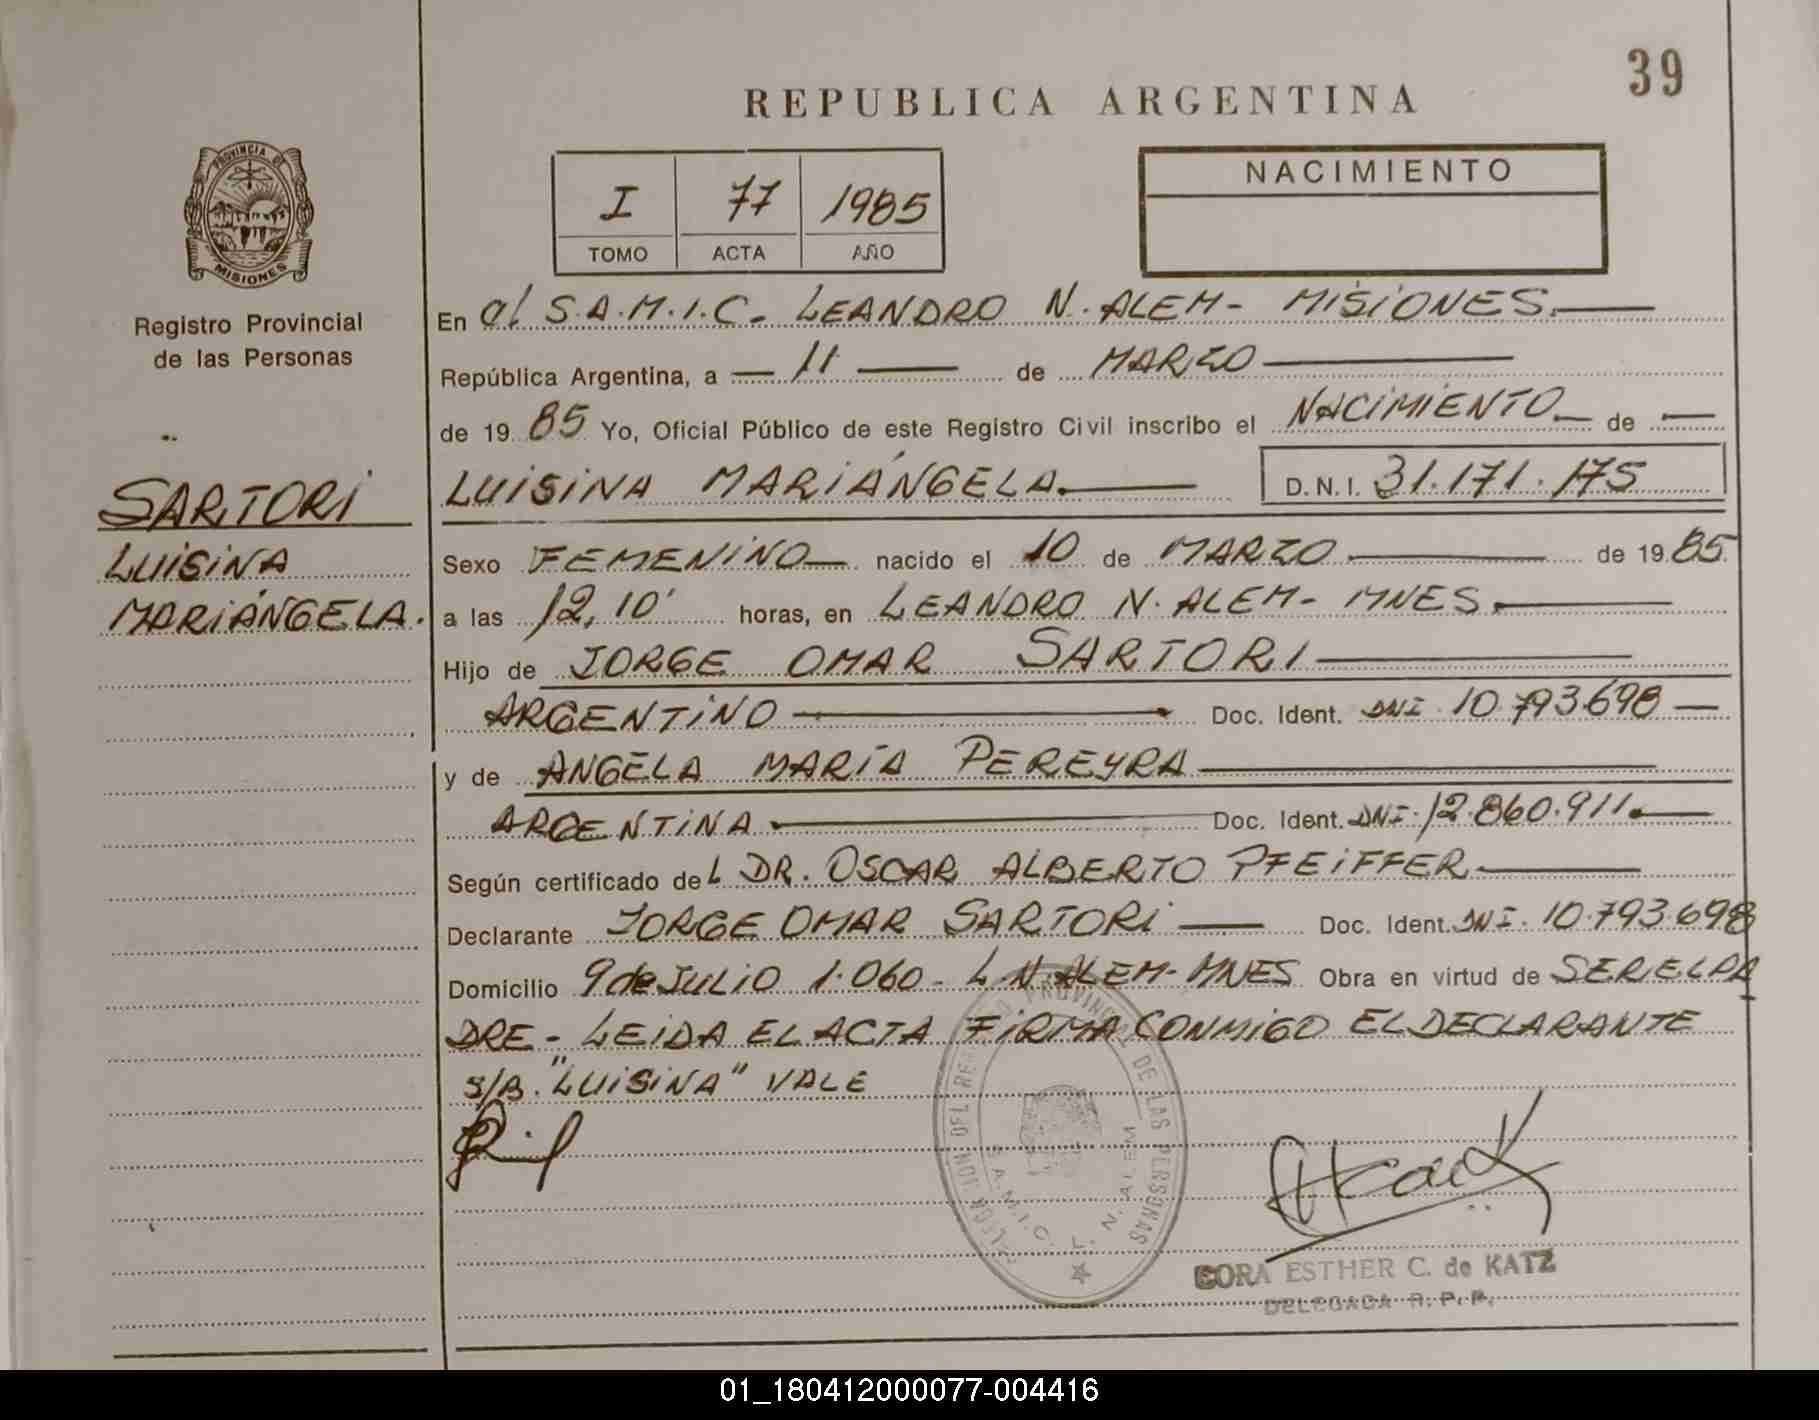 39
REPUBLICA ARGENTINA
PROVINCIA DE
MISIONES
I 77 1985
TOMO ACTA AÑO
NACIMIENTO
Registro Provincial
de las Personas
SARTORI
LUISINA
MARIÁNGELA.
En el S.A.M.I.C. LEANDRO N. ALEM - MISIONES.
República Argentina, a 11 de MARZO
de 19 85 Yo, Oficial Público de este Registro Civil inscribo el NACIMIENTO de
LUISINA MARIÁNGELA. D.N.I. 31.171.175
Sexo FEMENINO nacido el 10 de MARZO de 19 85
a las 12,10' horas, en LEANDRO N. ALEM - MNES.
Hijo de JORGE OMAR SARTORI
ARGENTINO Doc. Ident. DNI 10.793.698
y de ANGELA MARÍA PEREYRA
ARGENTINA Doc. Ident. DNI. 12.860.911.
Según certificado del DR. OSCAR ALBERTO PFEIFFER
Declarante JORGE OMAR SARTORI Doc. Ident. DNI. 10.793.698
Domicilio 9 de JULIO 1.060 - L.N. ALEM - MNES Obra en virtud de SER EL PA
DRE - LEIDA EL ACTA FIRMA CONMIGO EL DECLARANTE
S/B. "LUISINA" VALE
DELEGACION DEL REGISTRO PROVINCIAL DE LAS PERSONAS
S.A.M.I.C. L. N. ALEM
ESTHER C. de KATZ
DELEGADA R. P. P.
01_180412000077-004416